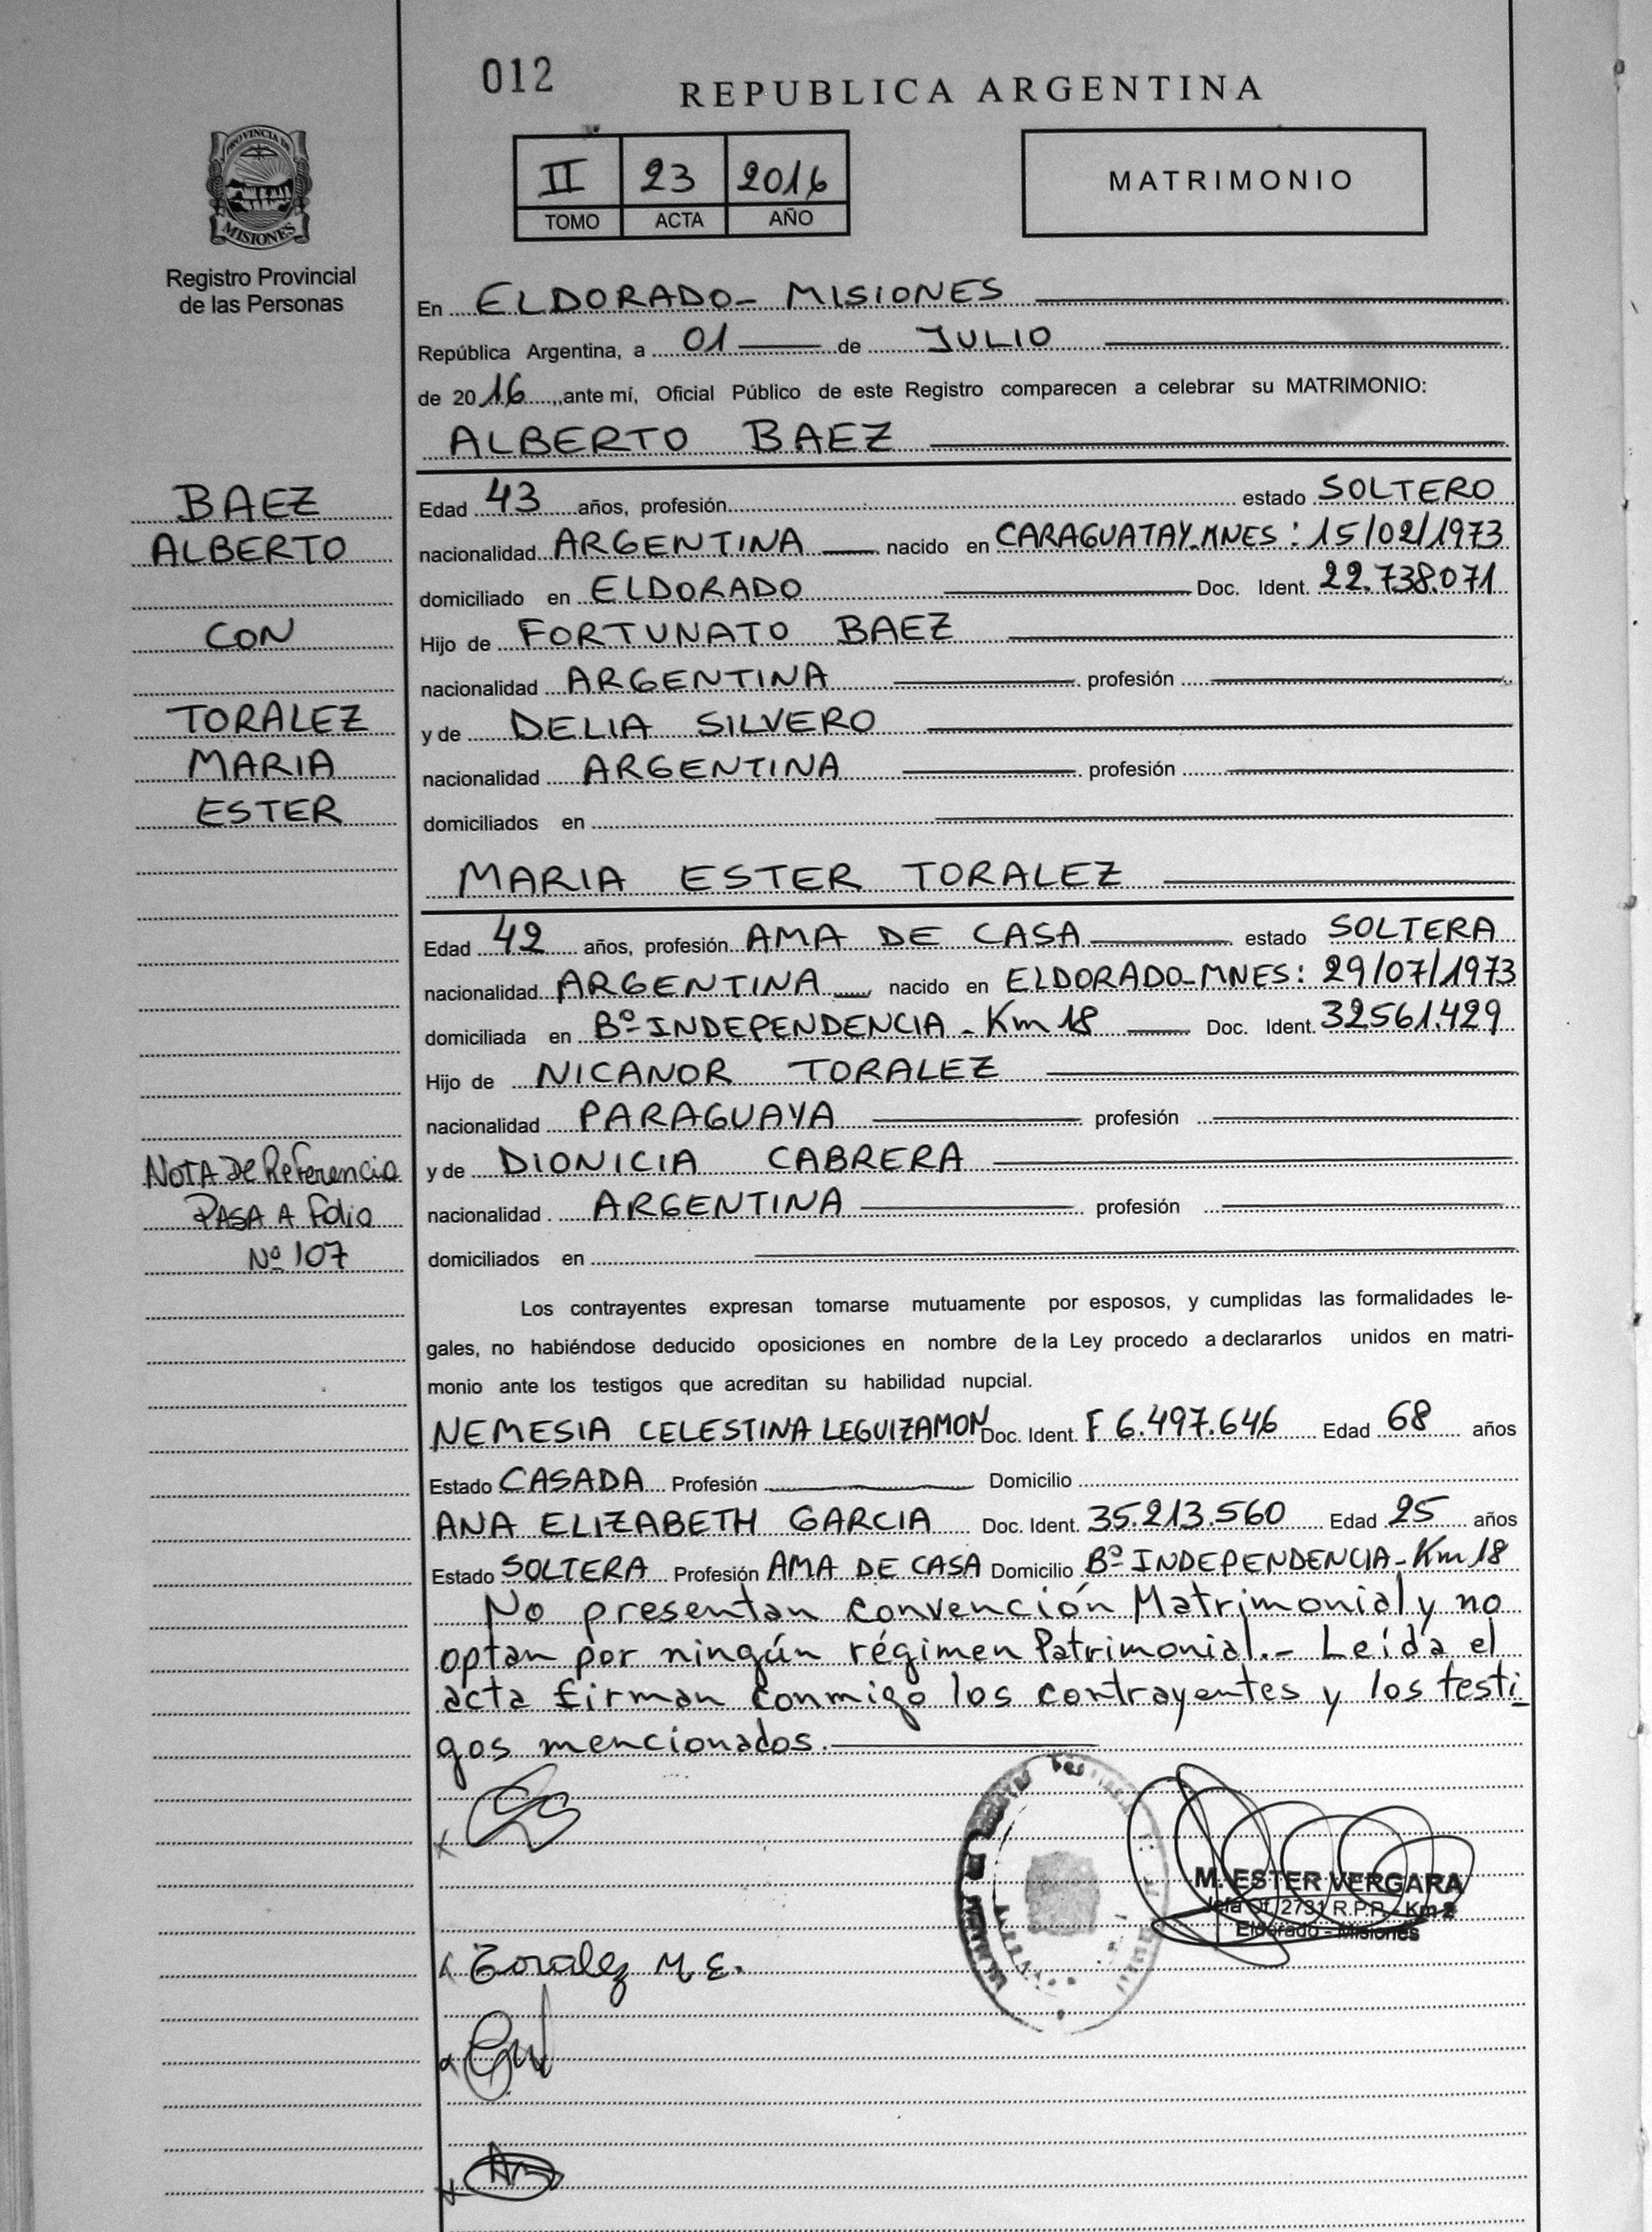 012
REPUBLICA ARGENTINA
II 23 2016
TOMO ACTA AÑO
MATRIMONIO
PROVINCIA DE
MISIONES
Registro Provincial
de las Personas
En ELDORADO- MISIONES
República Argentina, a 01 de JULIO
de 2016, ante mí, Oficial Público de este Registro comparecen a celebrar su MATRIMONIO:
ALBERTO BAEZ
BAEZ
ALBERTO
CON
TORALEZ
MARIA
ESTER
Edad 43 años, profesión estado SOLTERO
nacionalidad ARGENTINA nacido en CARAGUATAY-MNES: 15/02/1973
domiciliado en ELDORADO Doc. Ident. 22.738.071
Hijo de FORTUNATO BAEZ
nacionalidad ARGENTINA profesión
y de DELIA SILVERO
nacionalidad ARGENTINA profesión
domiciliados en
MARIA ESTER TORALEZ
Edad 42 años, profesión AMA DE CASA estado SOLTERA
nacionalidad ARGENTINA nacido en ELDORADO-MNES: 29/07/1973
domiciliada en Bº INDEPENDENCIA - Km 18 Doc. Ident. 32561.429
Hijo de NICANOR TORALEZ
nacionalidad PARAGUAYA profesión
y de DIONICIA CABRERA
nacionalidad ARGENTINA profesión
domiciliados en
NOTA DE Referencia
PASA A Folio
Nº 107
Los contrayentes expresan tomarse mutuamente por esposos, y cumplidas las formalidades le-
gales, no habiéndose deducido oposiciones en nombre de la Ley procedo a declararlos unidos en matri-
monio ante los testigos que acreditan su habilidad nupcial.
NEMESIA CELESTINA LEGUIZAMON Doc. Ident. F 6.497.646 Edad 68 años
Estado CASADA Profesión Domicilio
ANA ELIZABETH GARCIA Doc. Ident. 35.213.560 Edad 25 años
Estado SOLTERA Profesión AMA DE CASA Domicilio Bº INDEPENDENCIA - Km 18
No presentan convención Matrimonial y no
optan por ningún régimen Patrimonial.- Leída el
acta firman conmigo los contrayentes y los testi-
gos mencionados.
M. ESTER VERGARA
Jefa Of. 2731 R.P.P. - Km 2
Eldorado - Misiones
Toralez M. E.